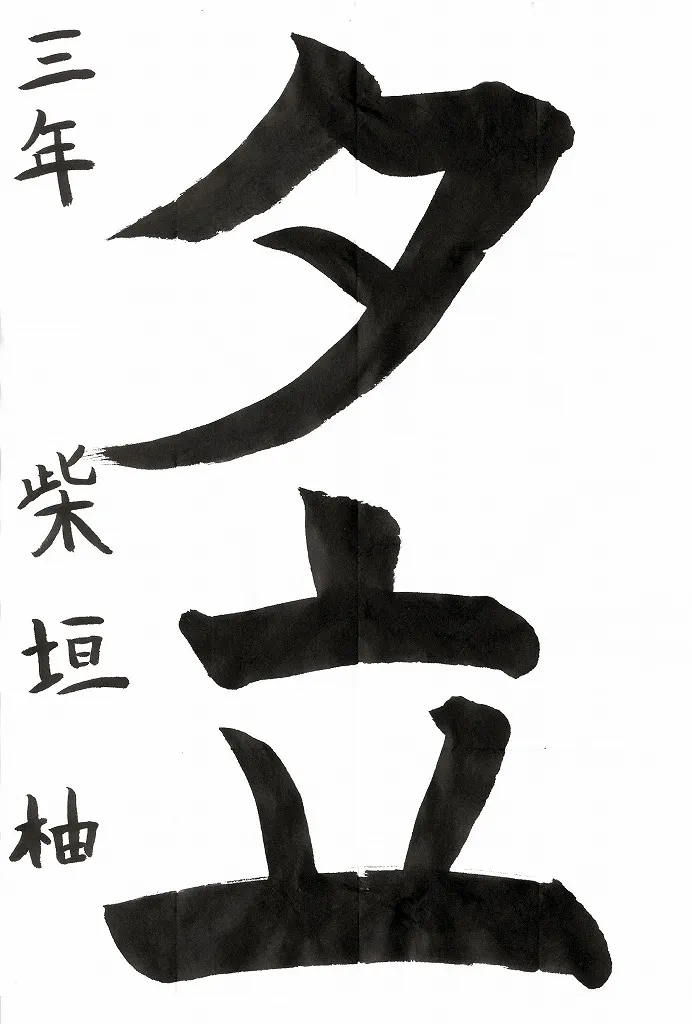 夕立
三年 柴垣 柚